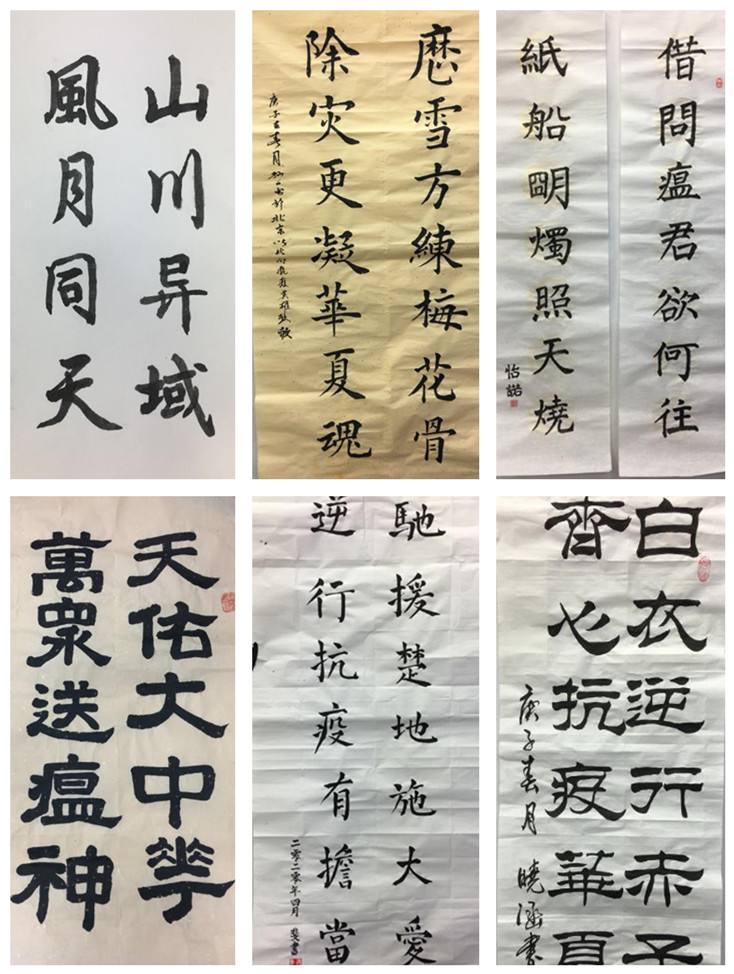 山川异域
風月同天
歷雪方練梅花骨
除灾更凝華夏魂
庚子春月
借問瘟君欲何往
紙船明燭照天燒
怡諾
天佑大中華
萬眾送瘟神
馳援楚地施大愛
逆行抗疫有擔當
二零二零年四月
白衣逆行赤子
齊心抗疫華夏
庚子春月 曉涵書